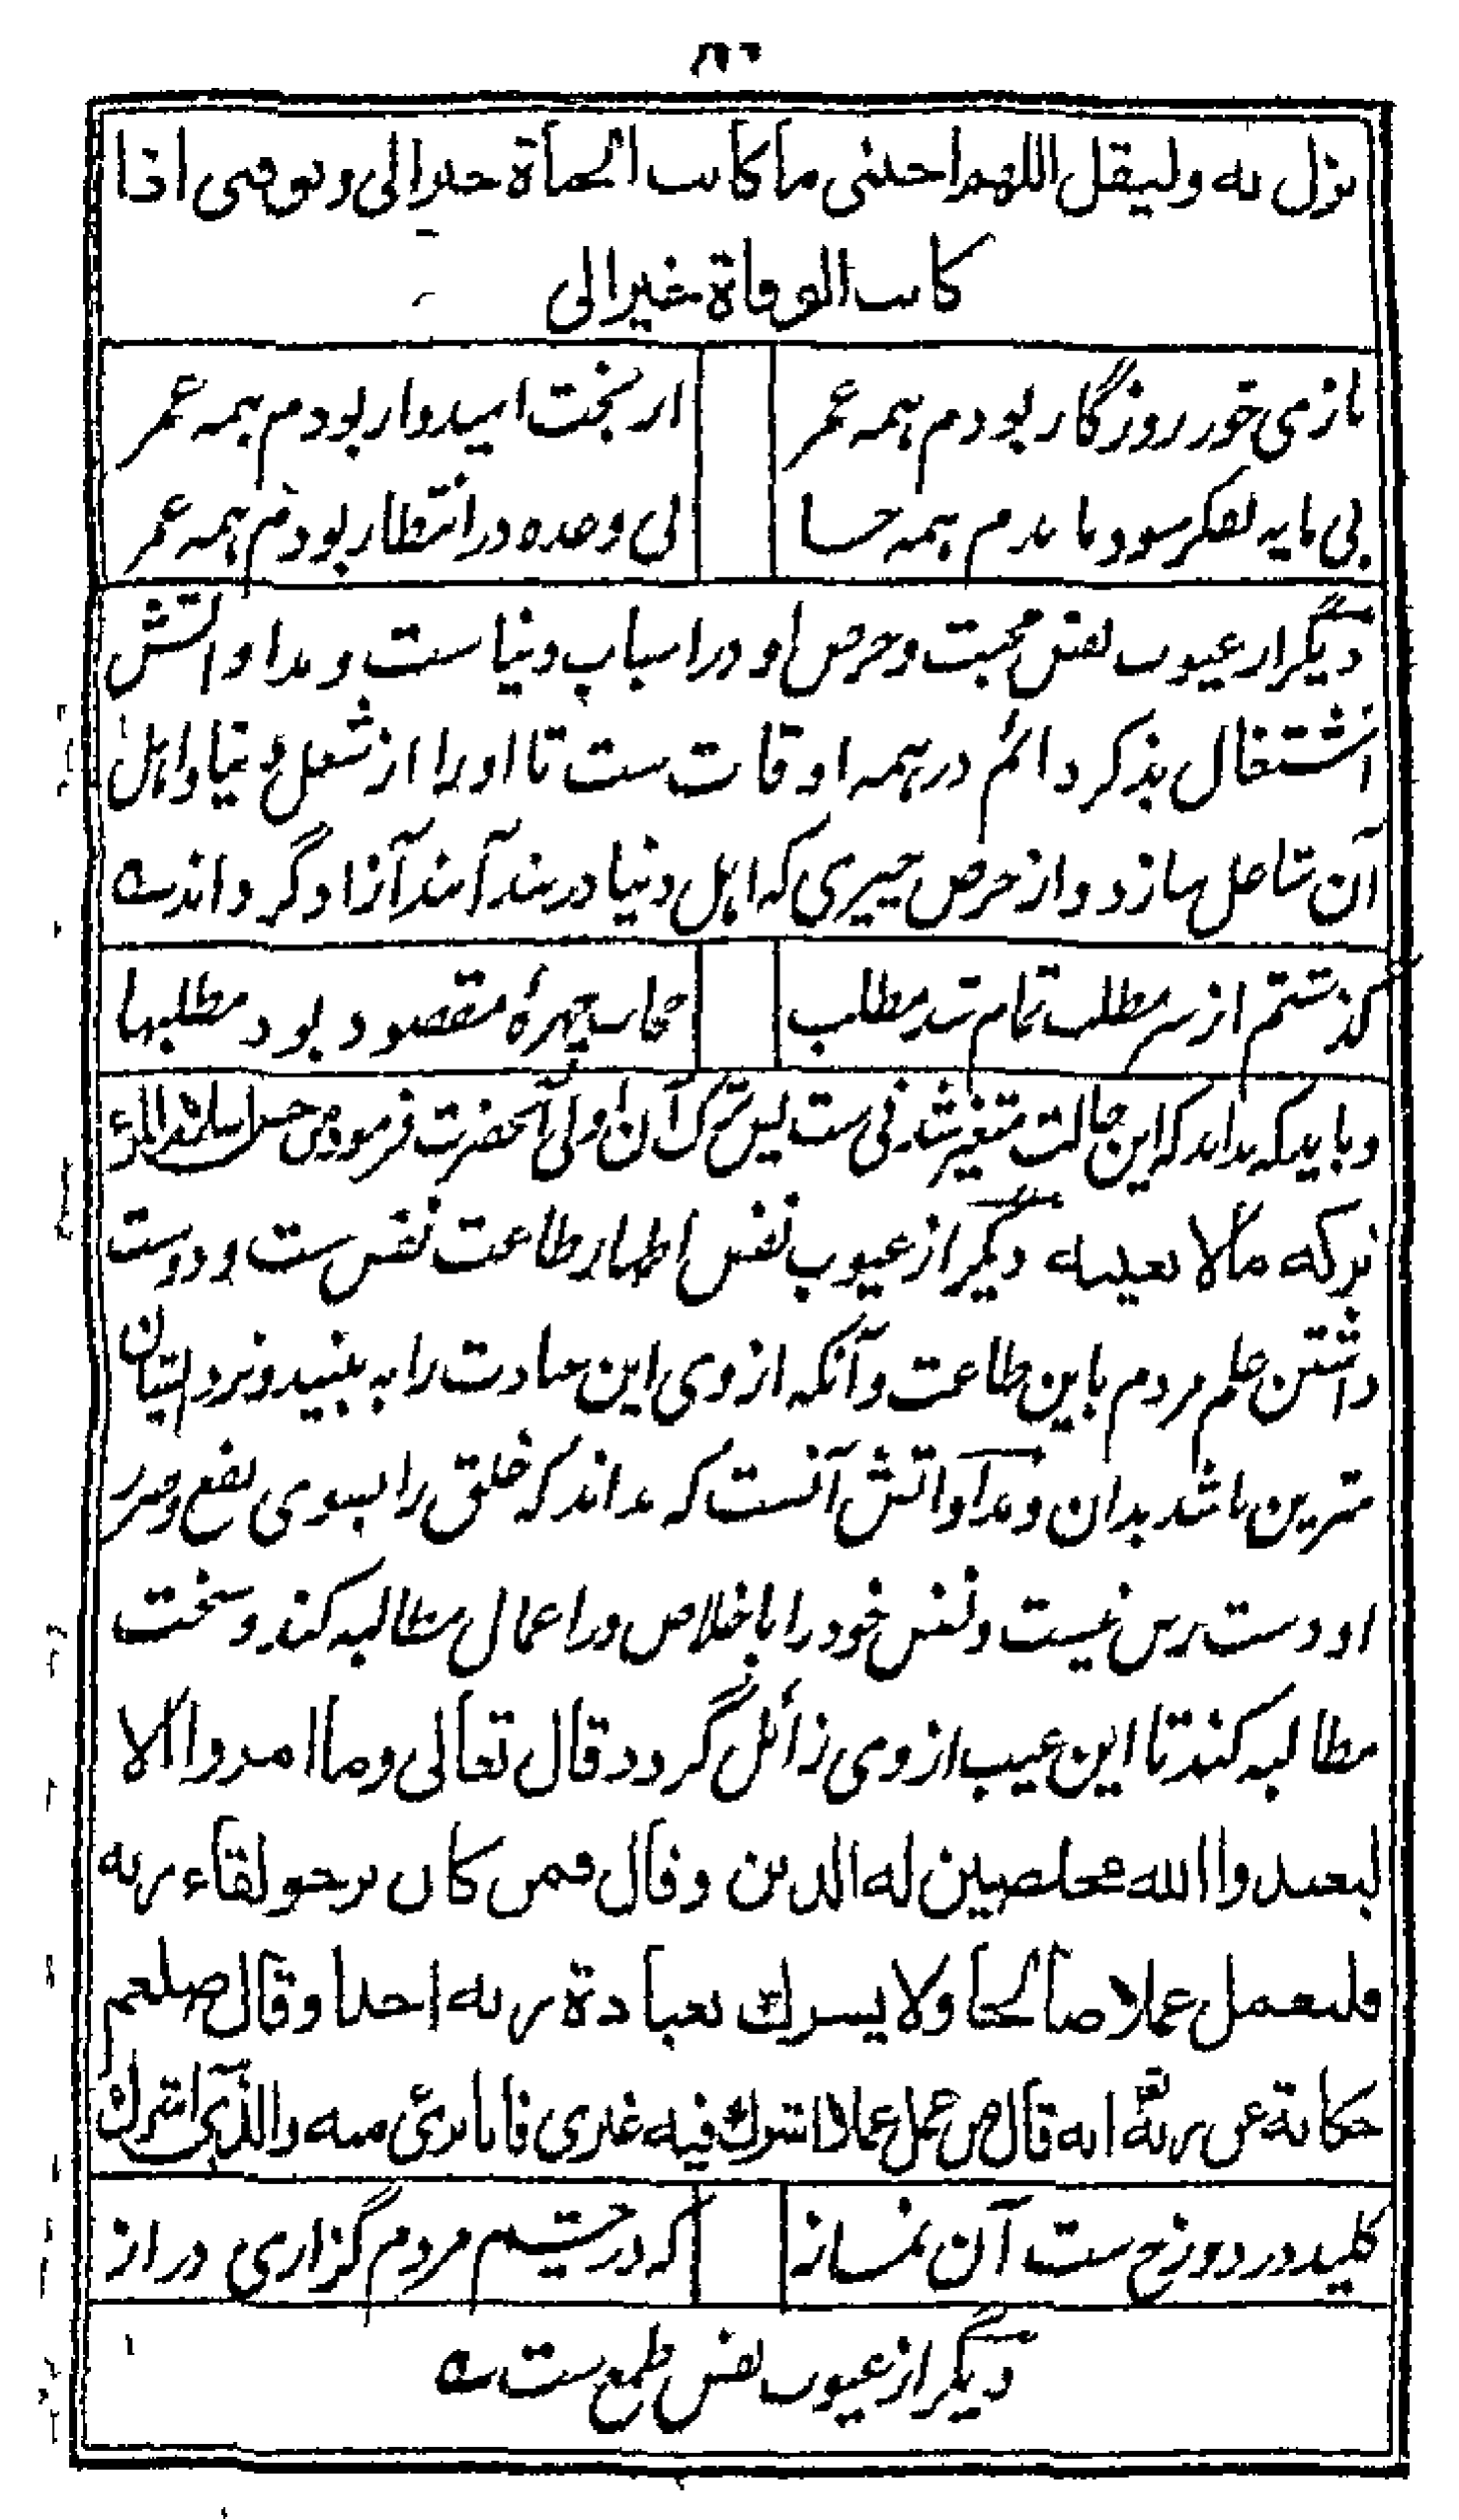 نزل به وليقل اللهم احيني ما كانت الحياة خيرا لي وتوفني اذا
كانت الوفاة خيرا لي
بازی خور روزگار بودم همه عمر
از بخت امیدوار بودم همه عمر
بی مایه بفکر سود ماندم همه جا
بی وعده در انتظار بودم همه عمر
دیگر از عیوب نفس محبت و حرص او در اسباب دنیاست و مداواتش
اشتغال بذکر دائم در همه اوقات ست تا او را از شغل دنیا و اہل
آن شاغل سازد و از حرص چیزی که اہل دنیا در بند آنند آزاد گرداند ؎
گذشتم از سر مطلب تمام شد مطلب
حجاب چهرهٔ مقصود بود مطلبها
و باید که بداند که این حالت متغیر شدنی ست پس ترک آن اولی آنحضرت فرمود من حسن اسلام المرء
تركه مالا يعنيه دیگر از عیوب نفس اظهار طاعت نفس ست و دوست
داشتن علم مردم باین طاعت و آنکه از وی این عبادت را به بینند و نزد ایشان
متزین باشد بدان و مداواتش آنست که بداند که خلق را بسوی نفع و ضرر
او دست رس نیست و نفس خود را باخلاص در اعمال مطالبه کند و سخت
مطالبه کند تا این عیب از وی زائل گردد قال تعالى وما امروا الا
ليعبدوا الله مخلصين له الدين وقال فمن كان يرجو لقاء ربه
فليعمل عملا صالحا ولا يشرك بعبادة ربه احدا وقال صلعم
حكاية عن ربه انه قال من عمل عملا اشرك فيه غيري فانا بريء منه والذي اشرك
کلید در دوزخ ست آن نماز
که در چشم مردم گزاری دراز
دیگر از عیوب نفس طمع ست ؎